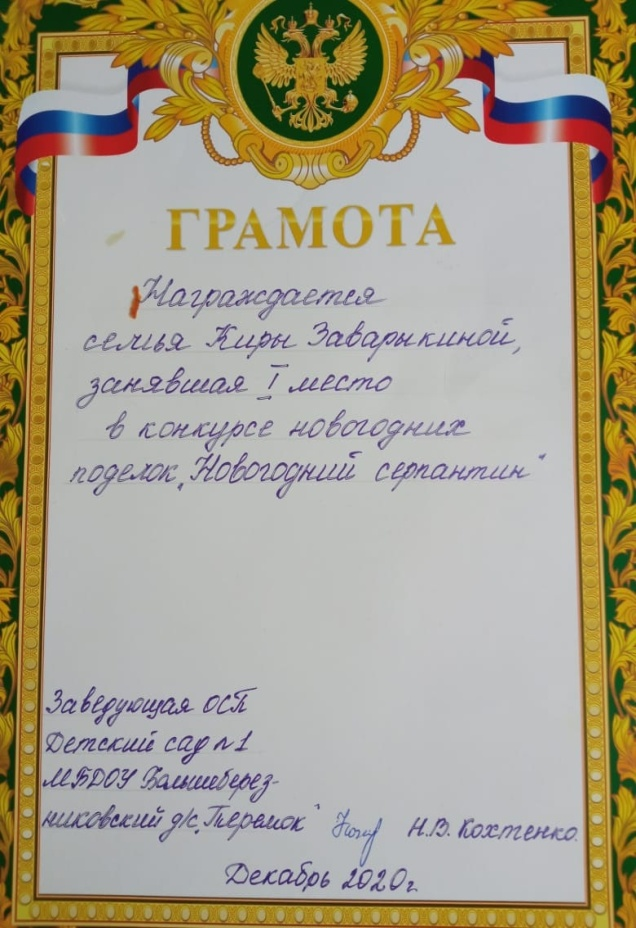 ГРАМОТА
Награждается
семья Киры Заварыкиной,
занявшая I место
в конкурсе новогодних
поделок „Новогодний серпантин"
Заведующая ОСП
Детский сад №1
МБДОУ Большеберез-
никовский д/с „Теремок" Н.В. Кохтенко.
Декабрь 2020г.